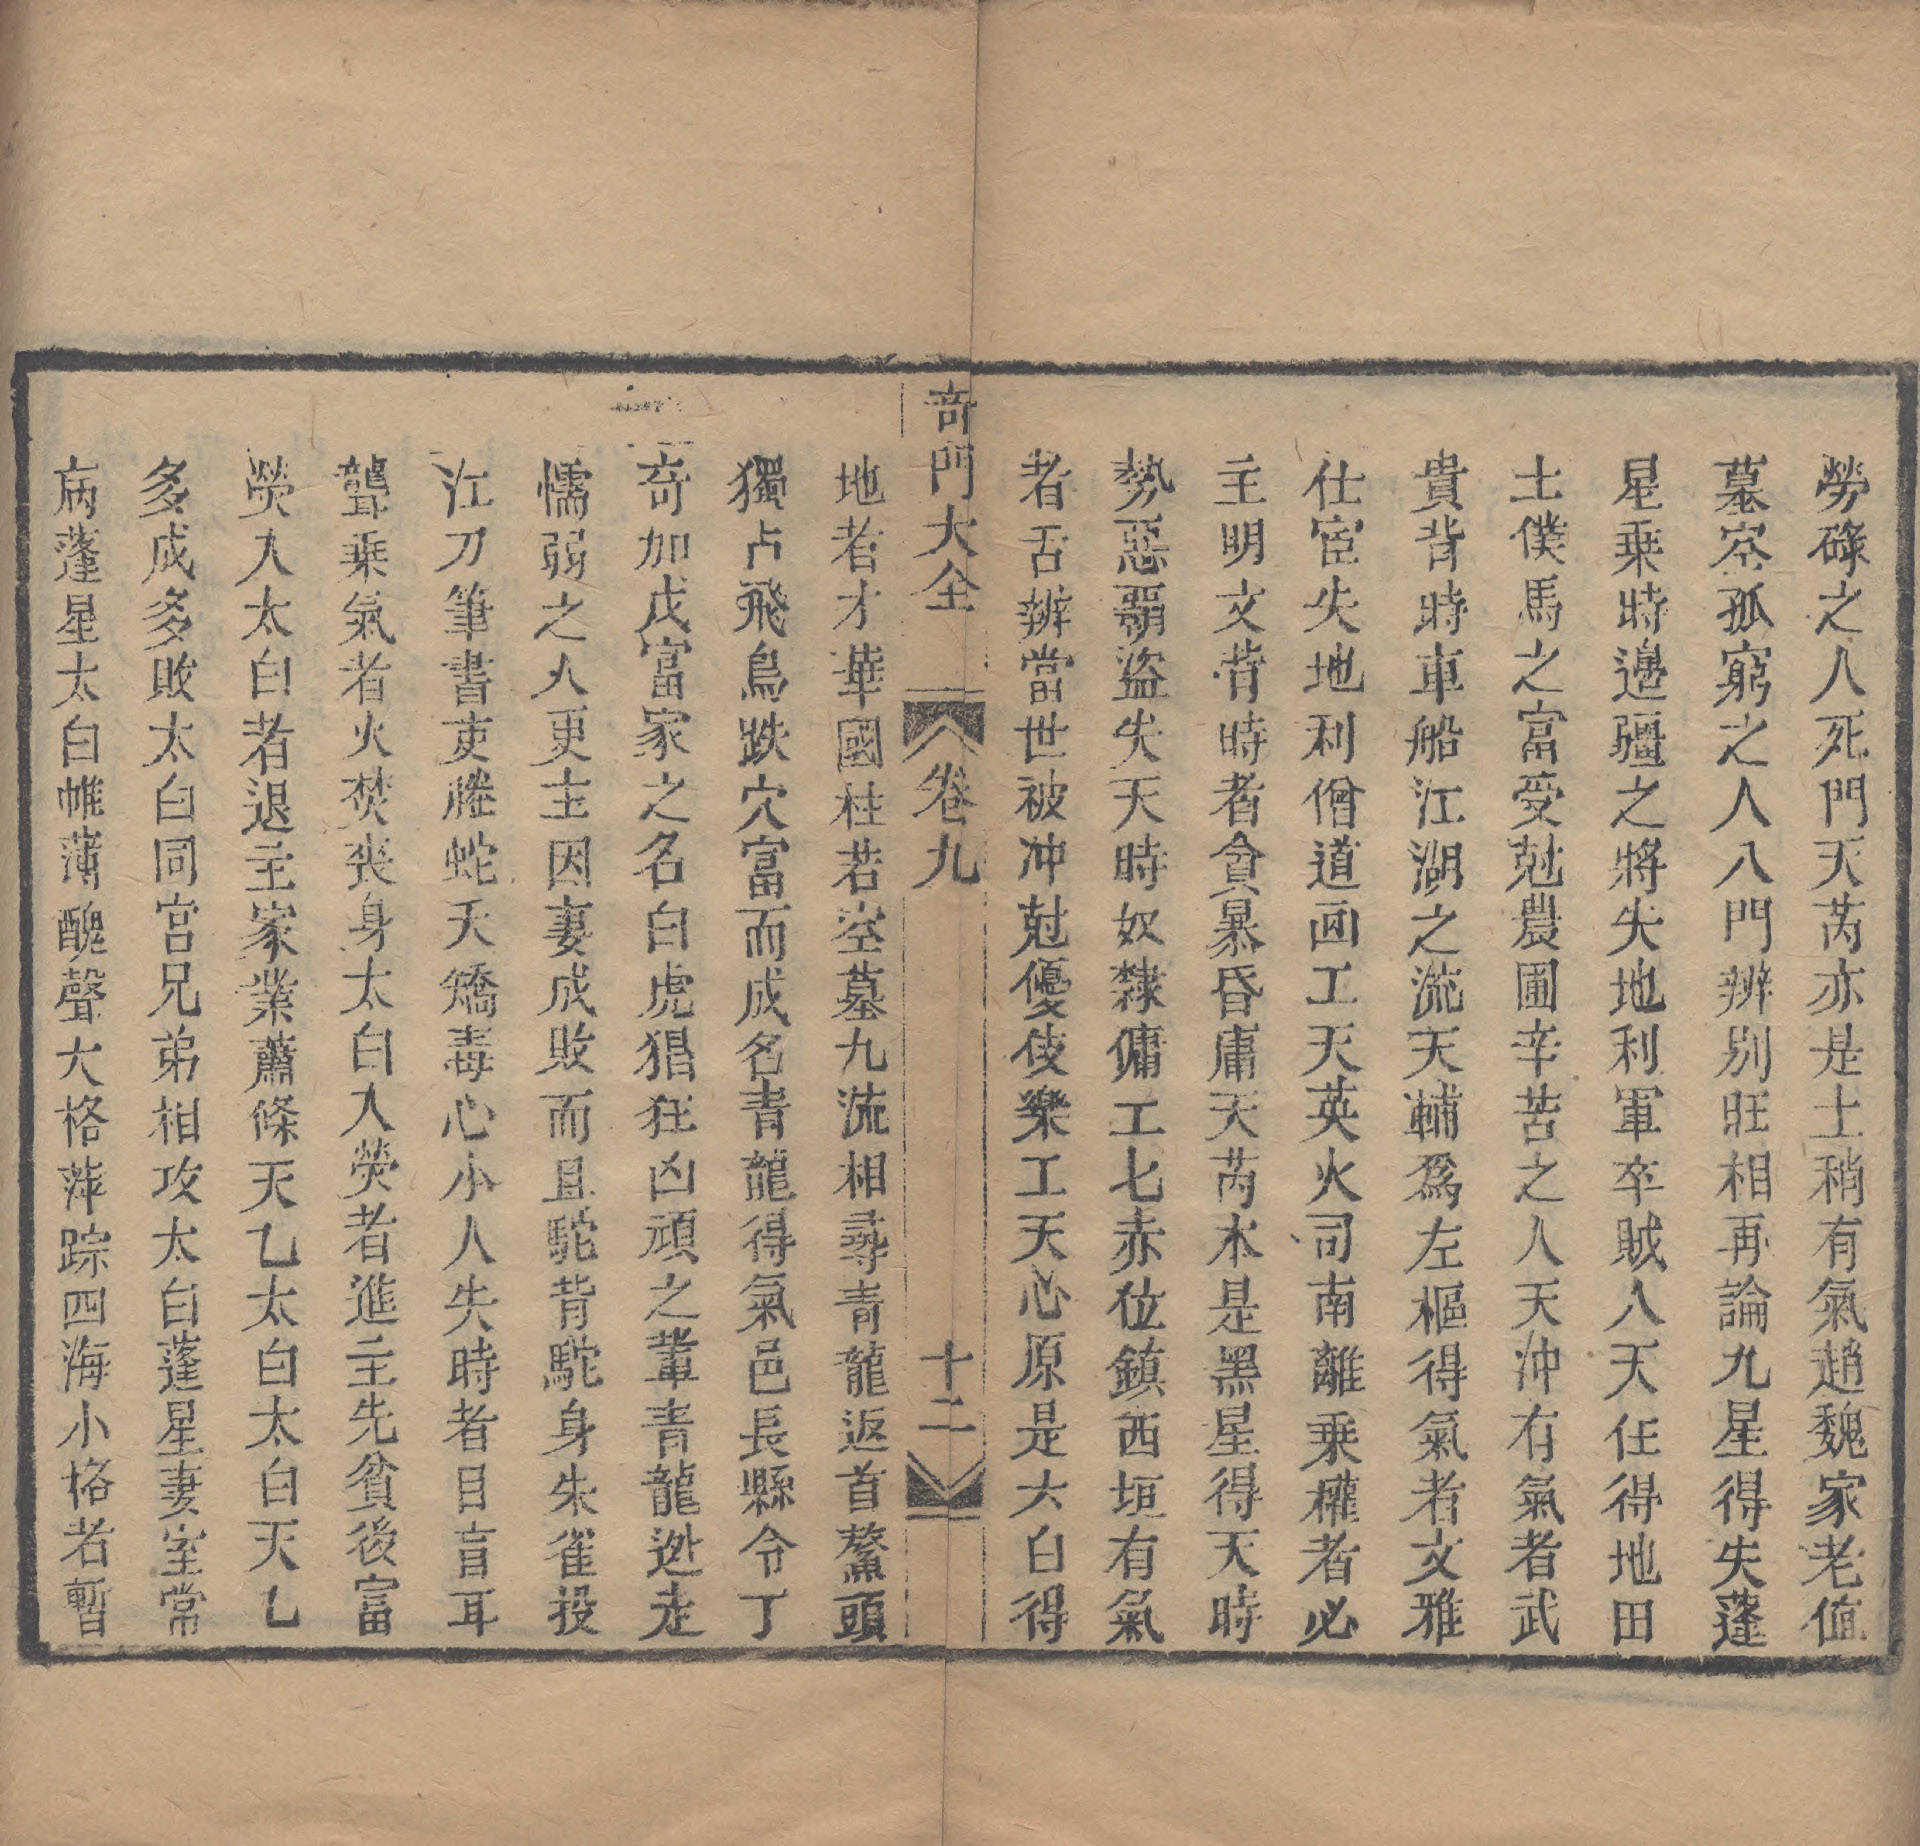 勞碌之人死門天芮亦是土稍有氣趙魏家老值
墓空孤窮之人八門辨别旺相再論九星得失蓬
星乗時邊疆之將失地利軍卒賊人天任得地田
土僕馬之富受尅農圃辛苦之人天沖有氣者武
貴背時車船江湖之流天輔爲左樞得氣者文雅
仕宦失地利僧道画工天英火司南離乗權者必
主明文背時者貪暴昏庸天芮本是黑星得天時
勢惡霸盜失天時奴隸傭工七赤位鎮西垣有氣
者舌辨當世被冲尅優伎樂工天心原是六白得
奇門大全 卷九 十二
地者才華國柱若空墓九流相尋青龍返首鰲頭
獨占飛鳥跌穴富而成名青龍得氣邑長縣令丁
奇加戊富家之名白虎猖狂凶頑之輩青龍迯走
懦弱之人更主因妻成敗而且駝背駝身朱雀投
江刀筆書吏螣蛇夭矯毒心小人失時者目盲耳
聾乗氣者火焚喪身太白入熒者進主先貧後富
熒入太白者退主家業蕭條天乙太白太白天乙
多成多敗太白同宮兄弟相攻太白蓬星妻室常
病蓬星太白帷薄醜聲大格萍踪四海小格者暫